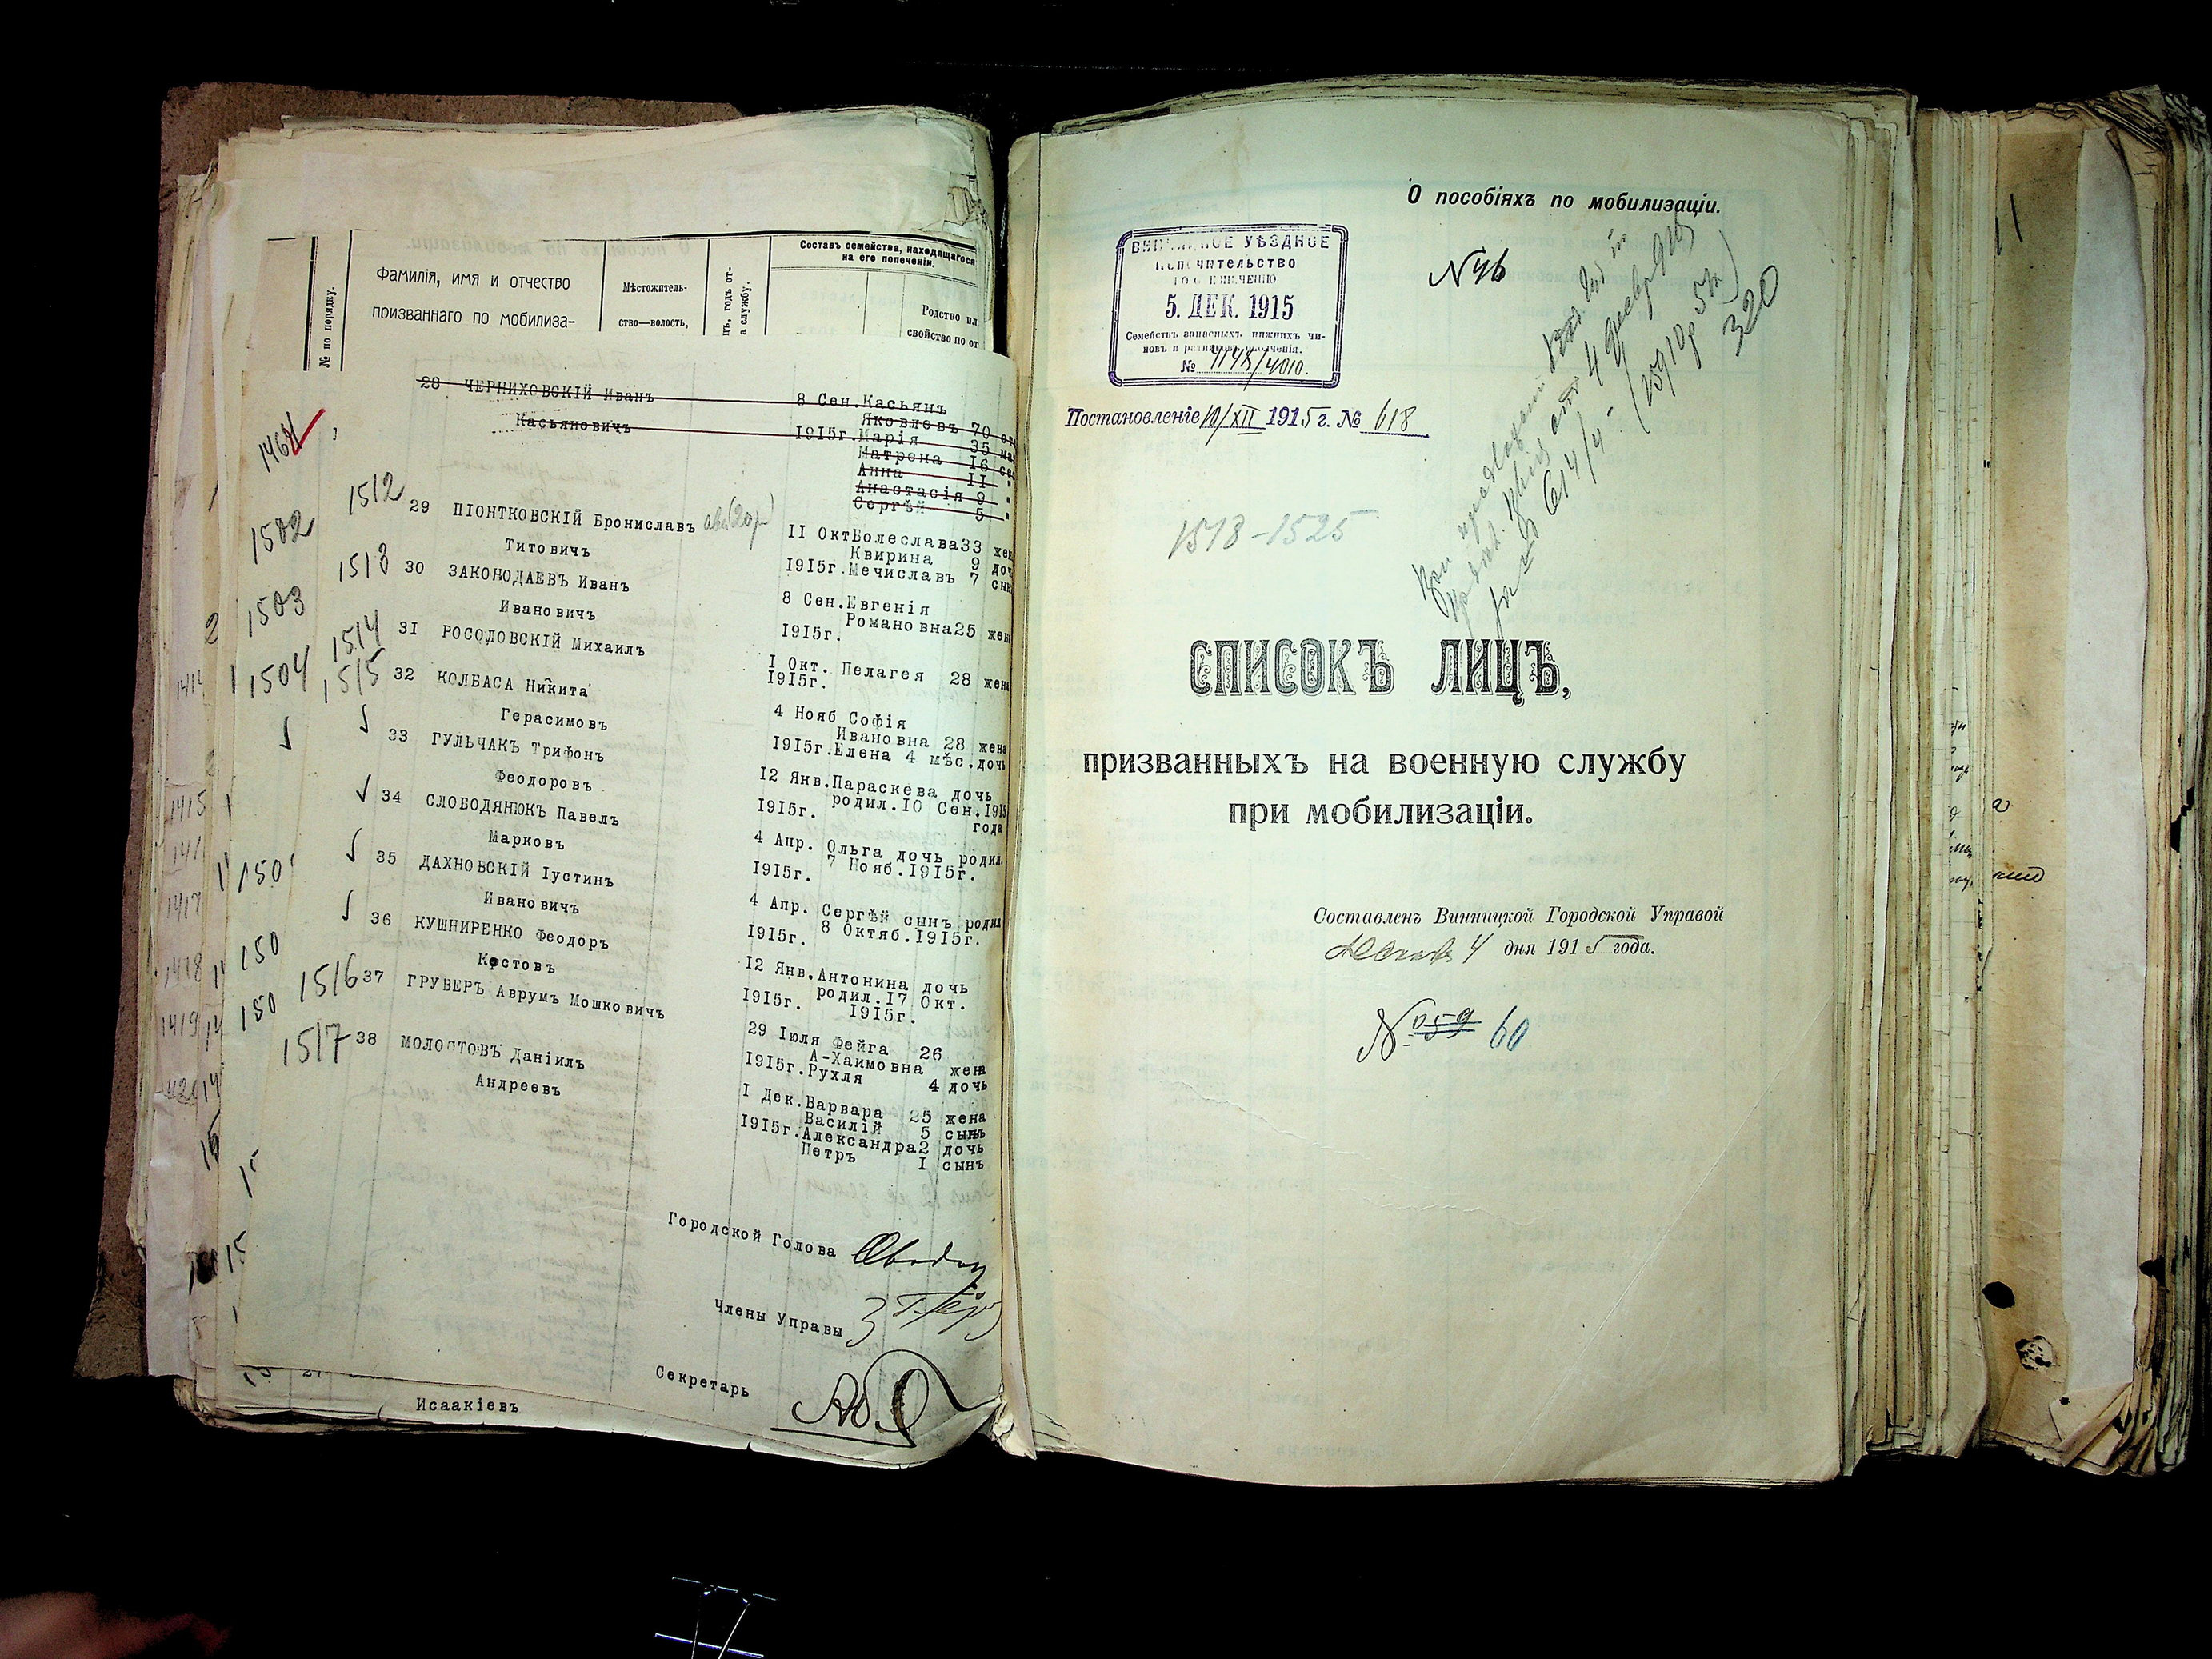 № по порядку.
Фамилія, имя и отчество
призваннаго по мобилиза-
Мѣстожитель-
ство—волость,
цъ, годъ от-
а службу.
Составъ семейства, находящагося
на его попеченіи.
Родство ил
свойство по от
28 ЧЕРНИХОВСКІЙ Иванъ
Касьяновичъ
8 Сен. Касьянъ
Яковлевъ 70
1915г. Марія 35
Матрона 16
Анна 11 "
Анастасія 9 "
Сергѣй 5 "
1464
1502 1512 29 ПІОНТКОВСКІЙ Брониславъ
Титовичъ
11 Окт Болеслава 33 жен
Квирина 9 доч
1915г. Мечиславъ 7 сын
1503 1513 30 ЗАКОНОДАЕВЪ Иванъ
Ивановичъ
8 Сен. Евгенія
Романовна 25 жен
1915г.
1504 1514 31 РОСОЛОВСКІЙ Михаилъ
1 Окт. Пелагея 28 жена
1915г.
1515 32 КОЛБАСА Никита
Герасимовъ
4 Нояб Софія
Ивановна 28 жена
1915г. Елена 4 мѣс. дочь
33 ГУЛЬЧАКЪ Трифонъ
Феодоровъ
12 Янв. Параскева дочь
родил. 10 Сен. 1915
1915г. года
34 СЛОБОДЯНЮКЪ Павелъ
Марковъ
4 Апр. Ольга дочь родил.
7 Нояб. 1915г.
1915г.
150 35 ДАХНОВСКІЙ Іустинъ
Ивановичъ
4 Апр. Сергѣй сынъ родил
8 Октяб. 1915г.
1915г.
150 36 КУШНИРЕНКО Феодоръ
Костовъ
12 Янв. Антонина дочь
родил. 17 Окт.
1915г. 1915г.
150 1516 37 ГРУВЕРЪ Аврумъ Мошковичъ
29 Іюля Фейга 26
А-Хаимовна жена
1915г. Рухля 4 дочь
1517 38 МОЛОСТОВЪ Даніилъ
Андреевъ
1 Дек. Варвара 25 жена
Василій 5 сынъ
1915г. Александра 2 дочь
Петръ 1 сынъ
Городской Голова
Члены Управы
Секретарь
Исаакіевъ
1415
1417
1418
1419
О пособіяхъ по мобилизаціи.
УѢЗДНОЕ
ПОПЕЧИТЕЛЬСТВО
5. ДЕК. 1915
Семействъ запасныхъ нижнихъ чи-
новъ и ратниковъ ополченія.
№ 4148/4010.
Постановленіе 10/XII 1915 г. № 618
320
1518-1525
СПИСОКЪ ЛИЦЪ,
призванныхъ на военную службу
при мобилизаціи.
Составленъ Винницкой Городской Управой
4 дня 1915 года.
№ 059 60